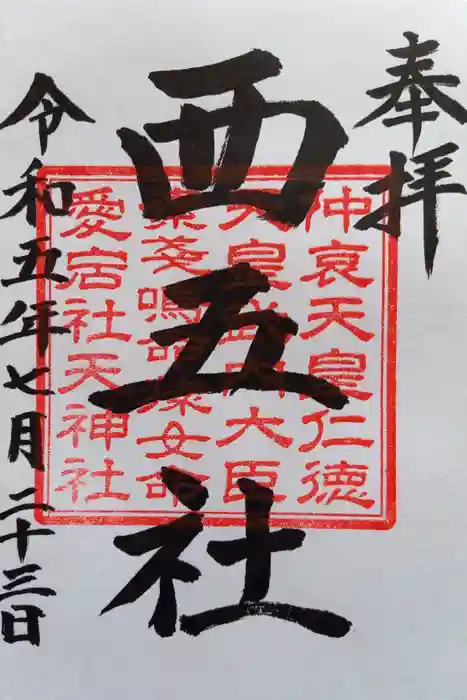 奉拝
西五社
仲哀天皇仁徳
天皇武内大臣
素戔鳴 女命
愛宕社天神社
令和五年七月二十三日